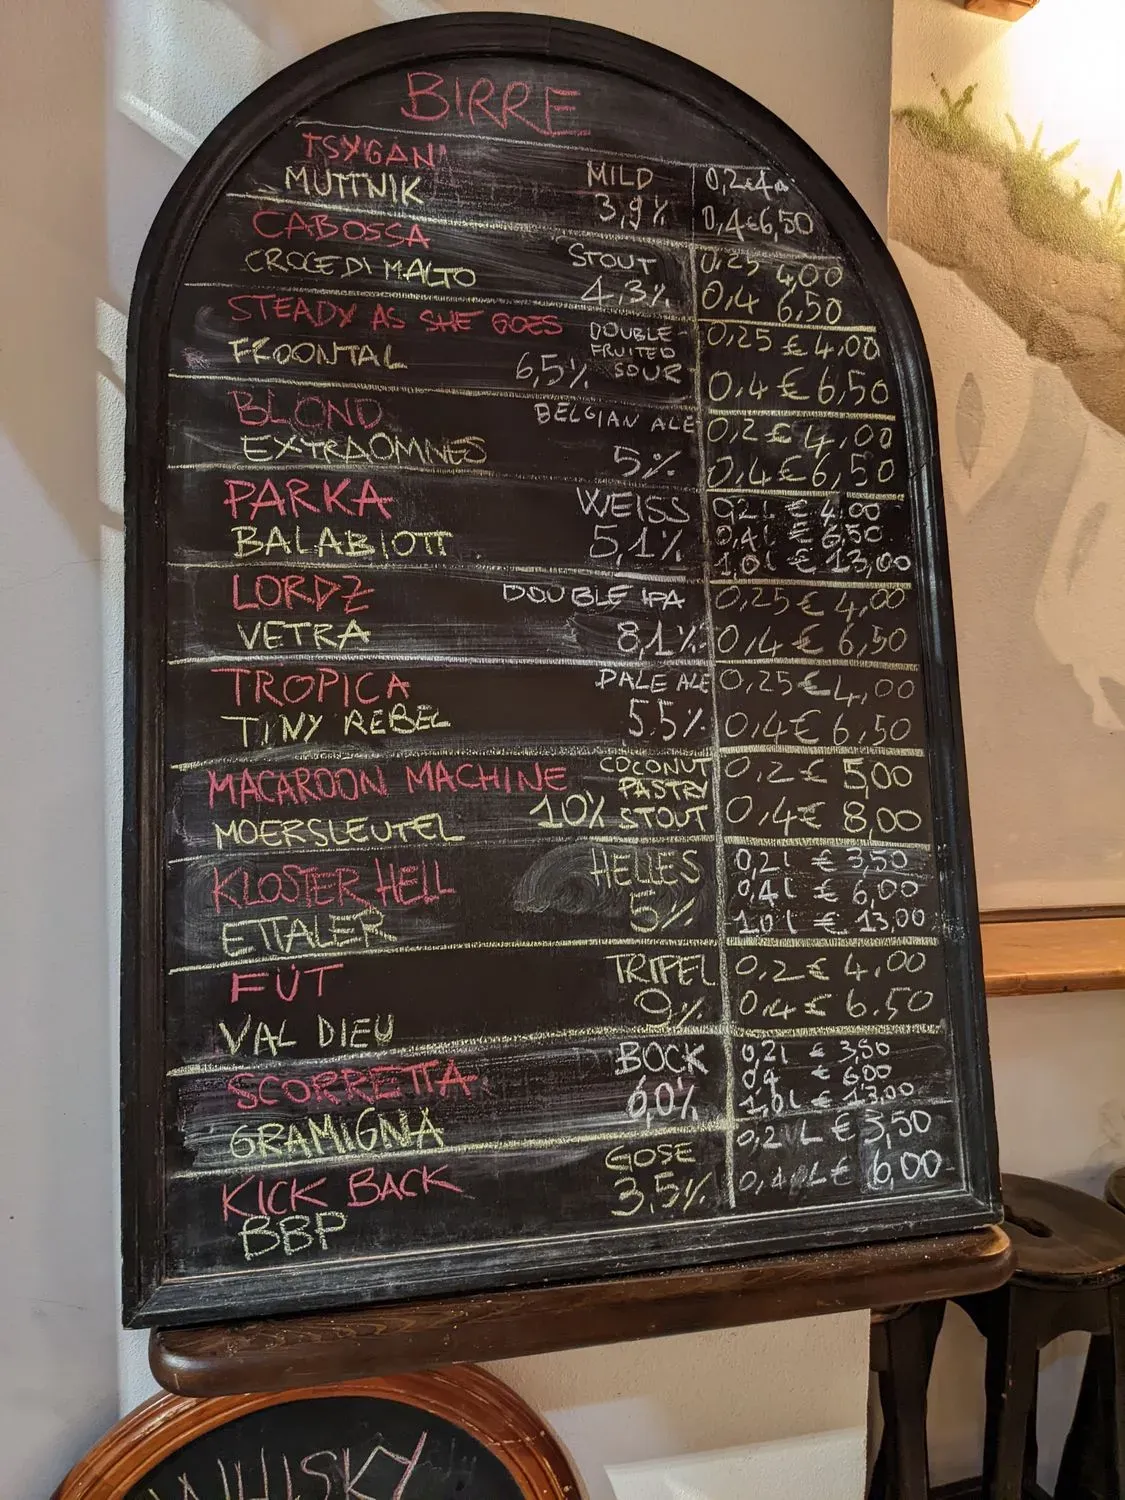 BIRRE
TSYGAN
MUTTNIK
MILD
3,9%
0,2 € 4
0,4 € 6,50
CABOSSA
CROCE DI MALTO
STOUT
4,3%
0,25 4,00
0,4 6,50
STEADY AS SHE GOES
FROONTAL
DOUBLE
FRUITED
6,5% SOUR
0,25 € 4,00
0,4 € 6,50
BLOND
EXTRAOMNES
BELGIAN ALE
5%
0,2 € 4,00
0,4 € 6,50
PARKA
BALABIOTT
WEISS
5,1%
0,2 l € 4,00
0,4 l € 6,50
1,0 l € 13,00
LORDZ
VETRA
DOUBLE IPA
8,1%
0,25 € 4,00
0,4 € 6,50
TROPICA
TINY REBEL
PALE ALE
5.5%
0,25 € 4,00
0,4 € 6,50
MACAROON MACHINE
MOERSLEUTEL
COCONUT
PASTRY
10% STOUT
0,2 € 5,00
0,4 € 8,00
KLOSTER HELL
ETTALER
HELLES
5%
0,2 l € 3,50
0,4 l € 6,00
1,0 l € 13,00
FÜT
VAL DIEU
TRIPEL
9%
0,2 € 4,00
0,4 € 6.50
SCORRETTA
GRAMIGNA
BOCK
6,0%
0,2 l € 3,50
0,4 € 6,00
1,0 l € 13,00
KICK BACK
BBP
GOSE
3,5%
0,2 L € 3,50
0,4 L € 6,00
WHISKY